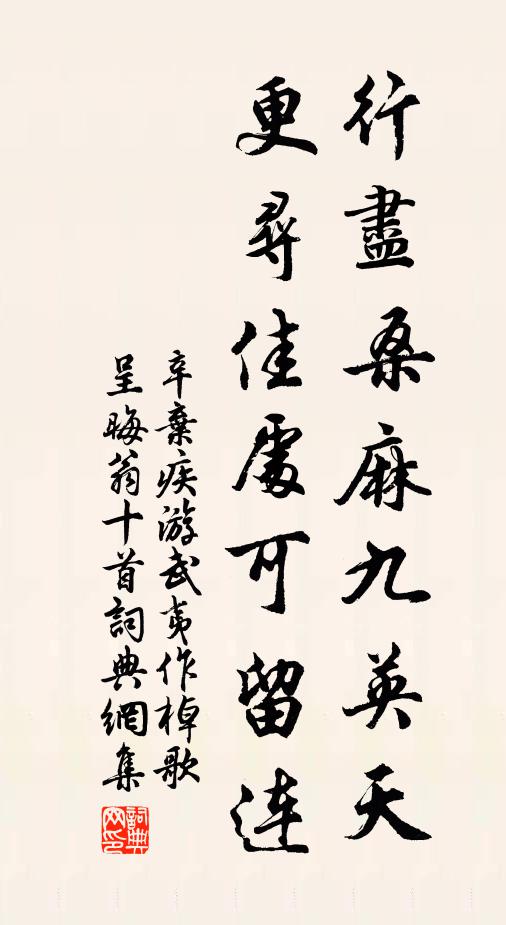 行盡桑麻九英天
更尋佳處可留连
辛棄疾游武夷作棹歌
呈晦翁十首詞典網集
詞典
网印